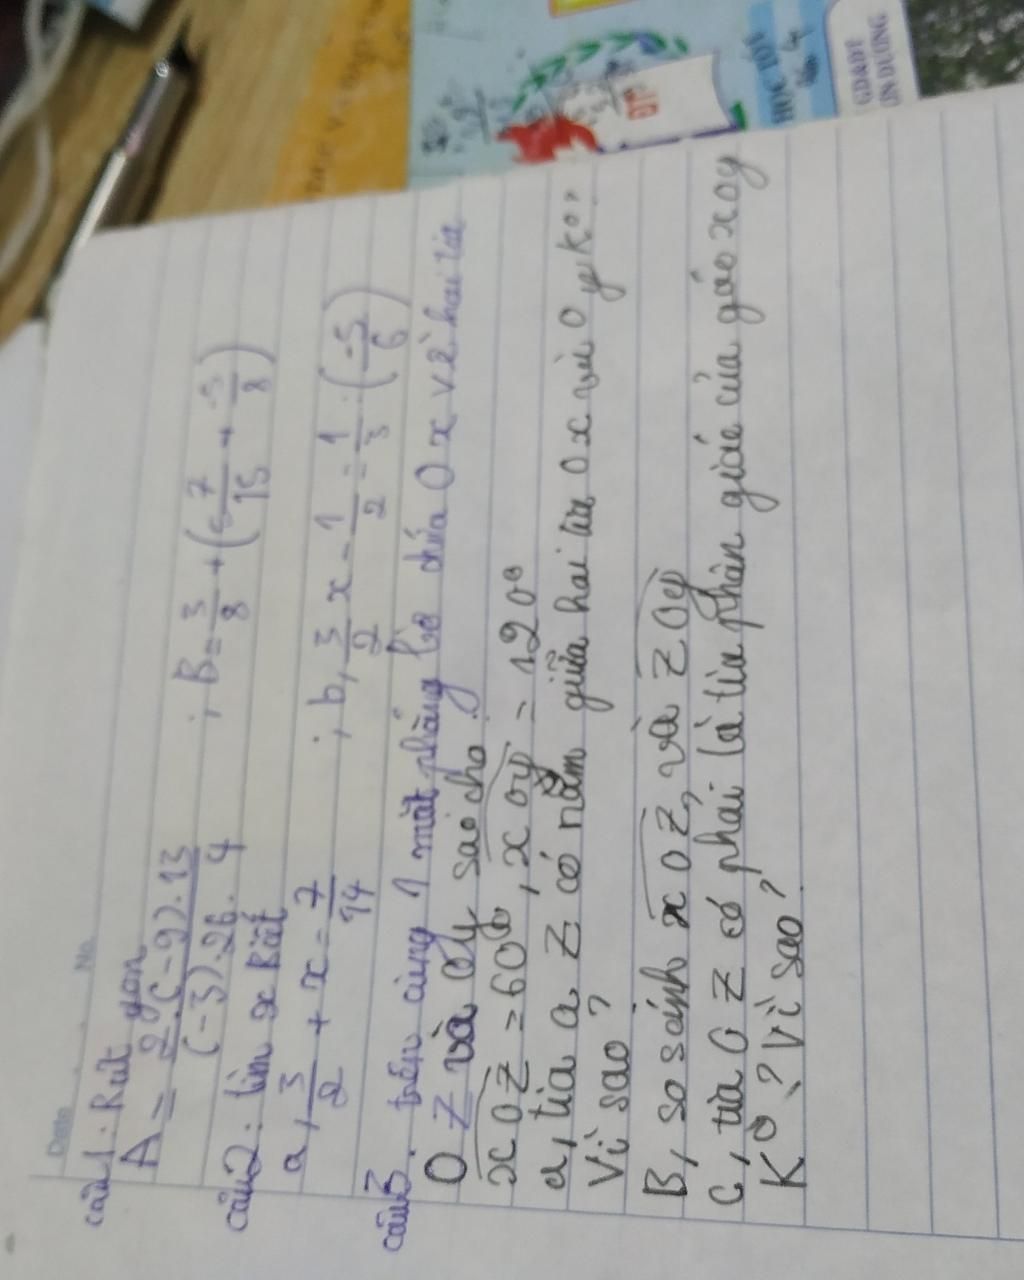 Date No.
câu1: Rút gọn
A = \frac{2.(-9).13}{(-3).26.4} ; B = \frac{3}{8} + (\frac{-7}{15} + \frac{-5}{8})
câu2: tìm x Biết
a, \frac{3}{2} + x = \frac{7}{14} ; b, \frac{3}{2} x - \frac{1}{2} = \frac{1}{3} : (\frac{-5}{6})
câu3. trên cùng 1 mặt phẳng bờ chứa Ox vẽ hai tia
OZ và Oy sao cho
xOZ = 60°, xOy = 120°
a, tia OZ có nằm giữa hai tia Ox và Oy K°?
Vì sao?
B, so sánh xOZ, và ZOy
C, tia OZ có phải là tia phân giác của góc xOy
K°? Vì sao?
GD&ĐT